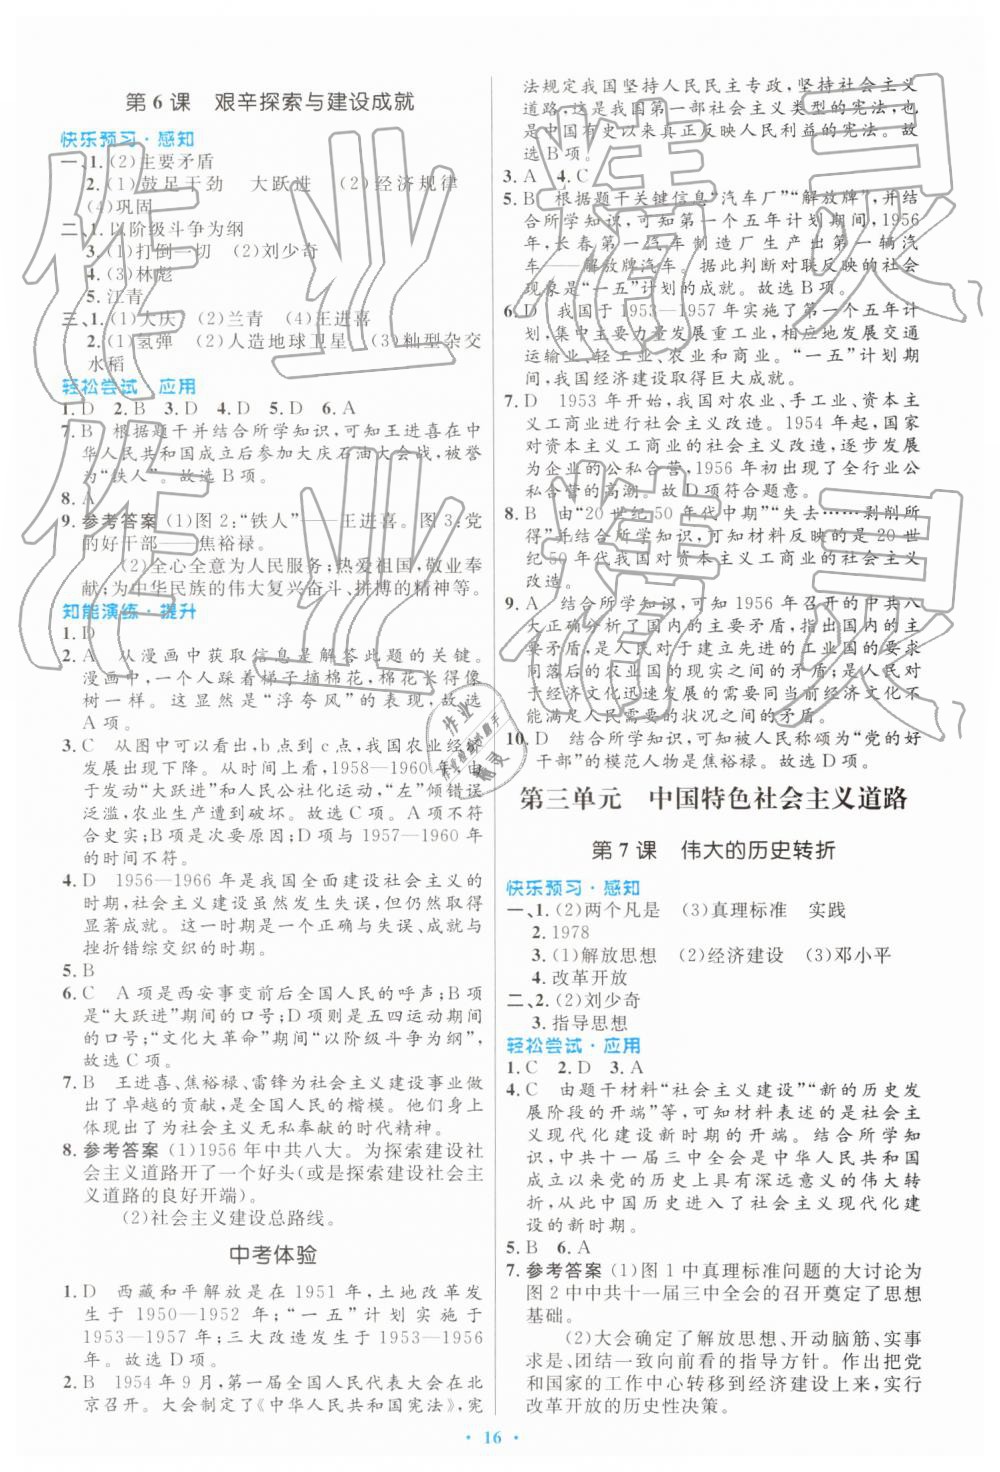 第6课　艰辛探索与建设成就
快乐预习·感知
一、1.(2)主要矛盾
2.(1)鼓足干劲　大跃进　(2)经济规律
(4)巩固
二、1.以阶级斗争为纲
3.(1)打倒一切　(2)刘少奇
4.(3)林彪
5.江青
三、1.(1)大庆　(2)兰青　(4)王进喜
2.(1)氢弹　(2)人造地球卫星　(3)籼型杂交
水稻
轻松尝试·应用
1.D　2.B　3.D　4.D　5.D　6.A
7.B　根据题干并结合所学知识,可知王进喜在中
华人民共和国成立后参加大庆石油大会战,被誉
为“铁人”。故选B项。
8.A
9.参考答案 (1)图2:“铁人”——王进喜。图3:党
的好干部——焦裕禄。
(2)全心全意为人民服务;热爱祖国,敬业奉
献;为中华民族的伟大复兴奋斗、拼搏的精神等。
知能演练·提升
1.D
2.A　从漫画中获取信息是解答此题的关键。
漫画中,一个人踩着梯子摘棉花,棉花长得像
树一样。这显然是“浮夸风”的表现。故选
A项。
3.C　从图中可以看出,b点到c点,我国农业经济
发展出现下降。从时间上看,1958—1960年,由
于发动“大跃进”和人民公社化运动,“左”倾错误
泛滥,农业生产遭到破坏。故选C项。A项不符
合史实;B项是次要原因;D项与1957—1960年
的时间不符。
4.D　1956—1966年是我国全面建设社会主义的
时期,社会主义建设虽然发生失误,但仍然取得
显著成就。这一时期是一个正确与失误、成功与
挫折错综交织的时期。
5.B
6.C　A项是西安事变前后全国人民的呼声;B项
是“大跃进”期间的口号;D项则是五四运动期间
的口号;“文化大革命”期间“以阶级斗争为纲”,
故选C项。
7.B　王进喜、焦裕禄、雷锋为社会主义建设事业做
出了卓越的贡献,是全国人民的楷模。他们身上
体现出了为社会主义无私奉献的时代精神。
8.参考答案 (1)1956年中共八大。为探索建设社
会主义道路开了一个好头(或是探索建设社会主
义道路的良好开端)。
(2)社会主义建设总路线。
中考体验
1.D　西藏和平解放是在1951年,土地改革发
生于1950—1952年;“一五”计划实施于
1953—1957年;三大改造发生于1953—1956
年。故选D项。
2.B　1954年9月,第一届全国人民代表大会在北
京召开。大会制定了《中华人民共和国宪法》,宪
法规定我国坚持人民民主专政,坚持社会主义
道路,这是我国第一部社会主义类型的宪法,也
是中国有史以来真正反映人民利益的宪法。故
选B项。
3.A　4.C
5.B　根据题干关键信息“汽车厂”“解放牌”,并结
合所学知识,可知第一个五年计划期间,1956
年,长春第一汽车制造厂生产出第一辆汽
车——解放牌汽车。据此判断对联反映的社会
现象是“一五”计划的成就。故选B项。
6.D　我国于1953—1957年实施了第一个五年计
划,集中主要力量发展重工业,相应地发展交通
运输业、轻工业、农业和商业。“一五”计划期
间,我国经济建设取得巨大成就。
7.D　1953年开始,我国对农业、手工业、资本主
义工商业进行社会主义改造。1954年起,国家
对资本主义工商业的社会主义改造,逐步发展为
企业的公私合营,1956年初出现了全行业公
私合营的高潮。故D项符合题意。
8.B　由“20世纪50年代中期”“失去……剥削所
得”并结合所学知识,可知材料反映的是20世
纪50年代我国对资本主义工商业的社会主义
改造。
9.A　结合所学知识,可知1956年召开的中共八
大正确分析了国内的主要矛盾,指出国内的主
要矛盾,是人民对于建立先进的工业国的要求
同落后的农业国的现实之间的矛盾;是人民对
于经济文化迅速发展的需要同当前经济文化不
能满足人民需要的状况之间的矛盾。
10.D　结合所学知识,可知被人民称颂为“党的好
干部”的模范人物是焦裕禄。故选D项。
第三单元　中国特色社会主义道路
第7课　伟大的历史转折
快乐预习·感知
一、1.(2)两个凡是　(3)真理标准　实践
2.1978
3.(1)解放思想　(2)经济建设　(3)邓小平
4.改革开放
二、2.(2)刘少奇
3.指导思想
轻松尝试·应用
1.C　2.D　3.A
4.C　由题干材料“社会主义建设”“新的历史发
展阶段的开端”等,可知材料表述的是社会主
义现代化建设新时期的开端。结合所学知
识,中共十一届三中全会是中华人民共和国
成立以来党的历史上具有深远意义的伟大转
折,从此中国历史进入了社会主义现代化建
设的新时期。
5.B　6.A
7.参考答案 (1)图1中真理标准问题的大讨论为
图2中中共十一届三中全会的召开奠定了思想
基础。
(2)大会确定了解放思想、开动脑筋、实事
求是、团结一致向前看的指导方针。作出把党
和国家的工作中心转移到经济建设上来,实行
改革开放的历史性决策。
· 16 ·
作业精灵
作业精灵